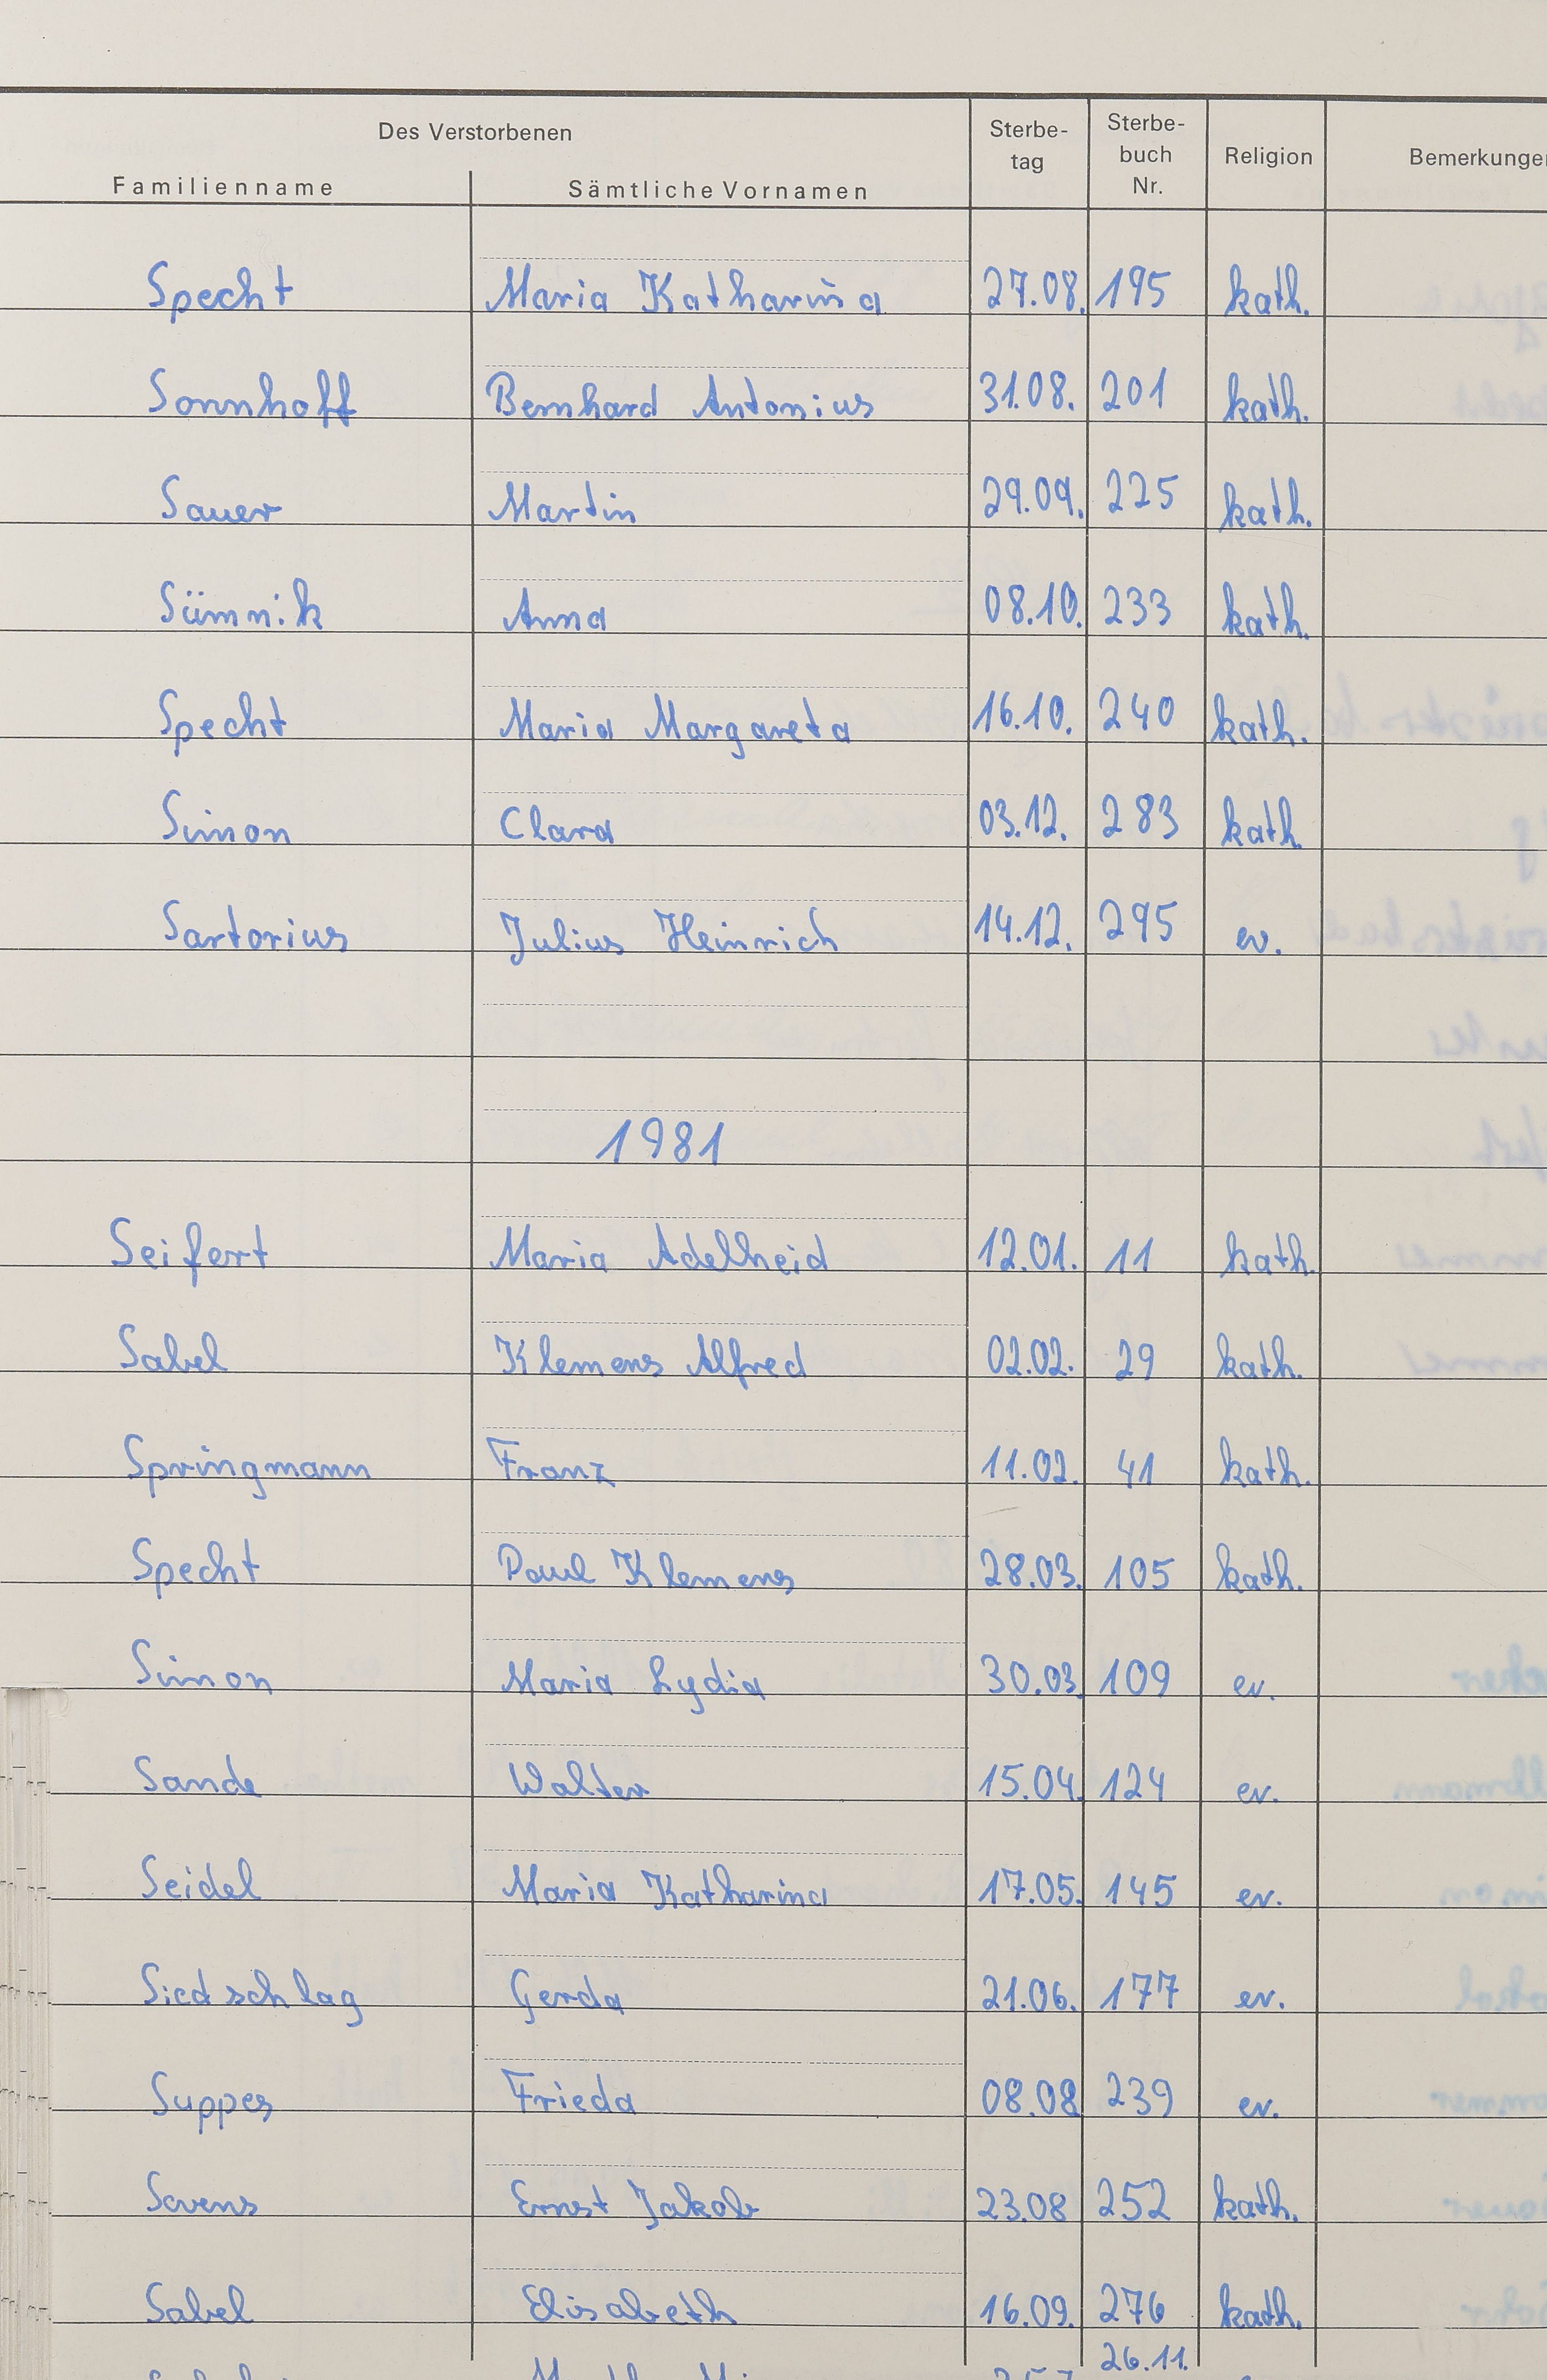 Des Verstorbenen Sterbe- Sterbe- Religion
tag buch
Familienname Sämtliche Vornamen Nr.
Specht Maria Katharina 27.08. 195 kath.
Sonnhoff Bernhard Antonius 31.08. 201 kath.
Sauer Martin 29.09. 225 kath.
Sümnik Anna 08.10. 233 kath.
Specht Maria Margareta 16.10. 240 kath.
Simon Clara 03.12. 283 kath.
Sartorius Julius Heinrich 14.12. 295 ev.
1981
Seifert Maria Adelheid 12.01. 11 kath.
Sabel Klemens Alfred 02.02. 29 kath.
Springmann Franz 11.02. 41 kath.
Specht Paul Klemens 28.03. 105 kath.
Simon Maria Lydia 30.03. 109 ev.
Sande Walter 15.04. 124 ev.
Seidel Maria Katharina 17.05. 145 ev.
Siedschlag Gerda 21.06. 177 ev.
Suppes Frieda 08.08 239 ev.
Savens Ernst Jakob 23.08 252 kath.
Sabel Elisabeth 16.09. 276 kath.
26.11.